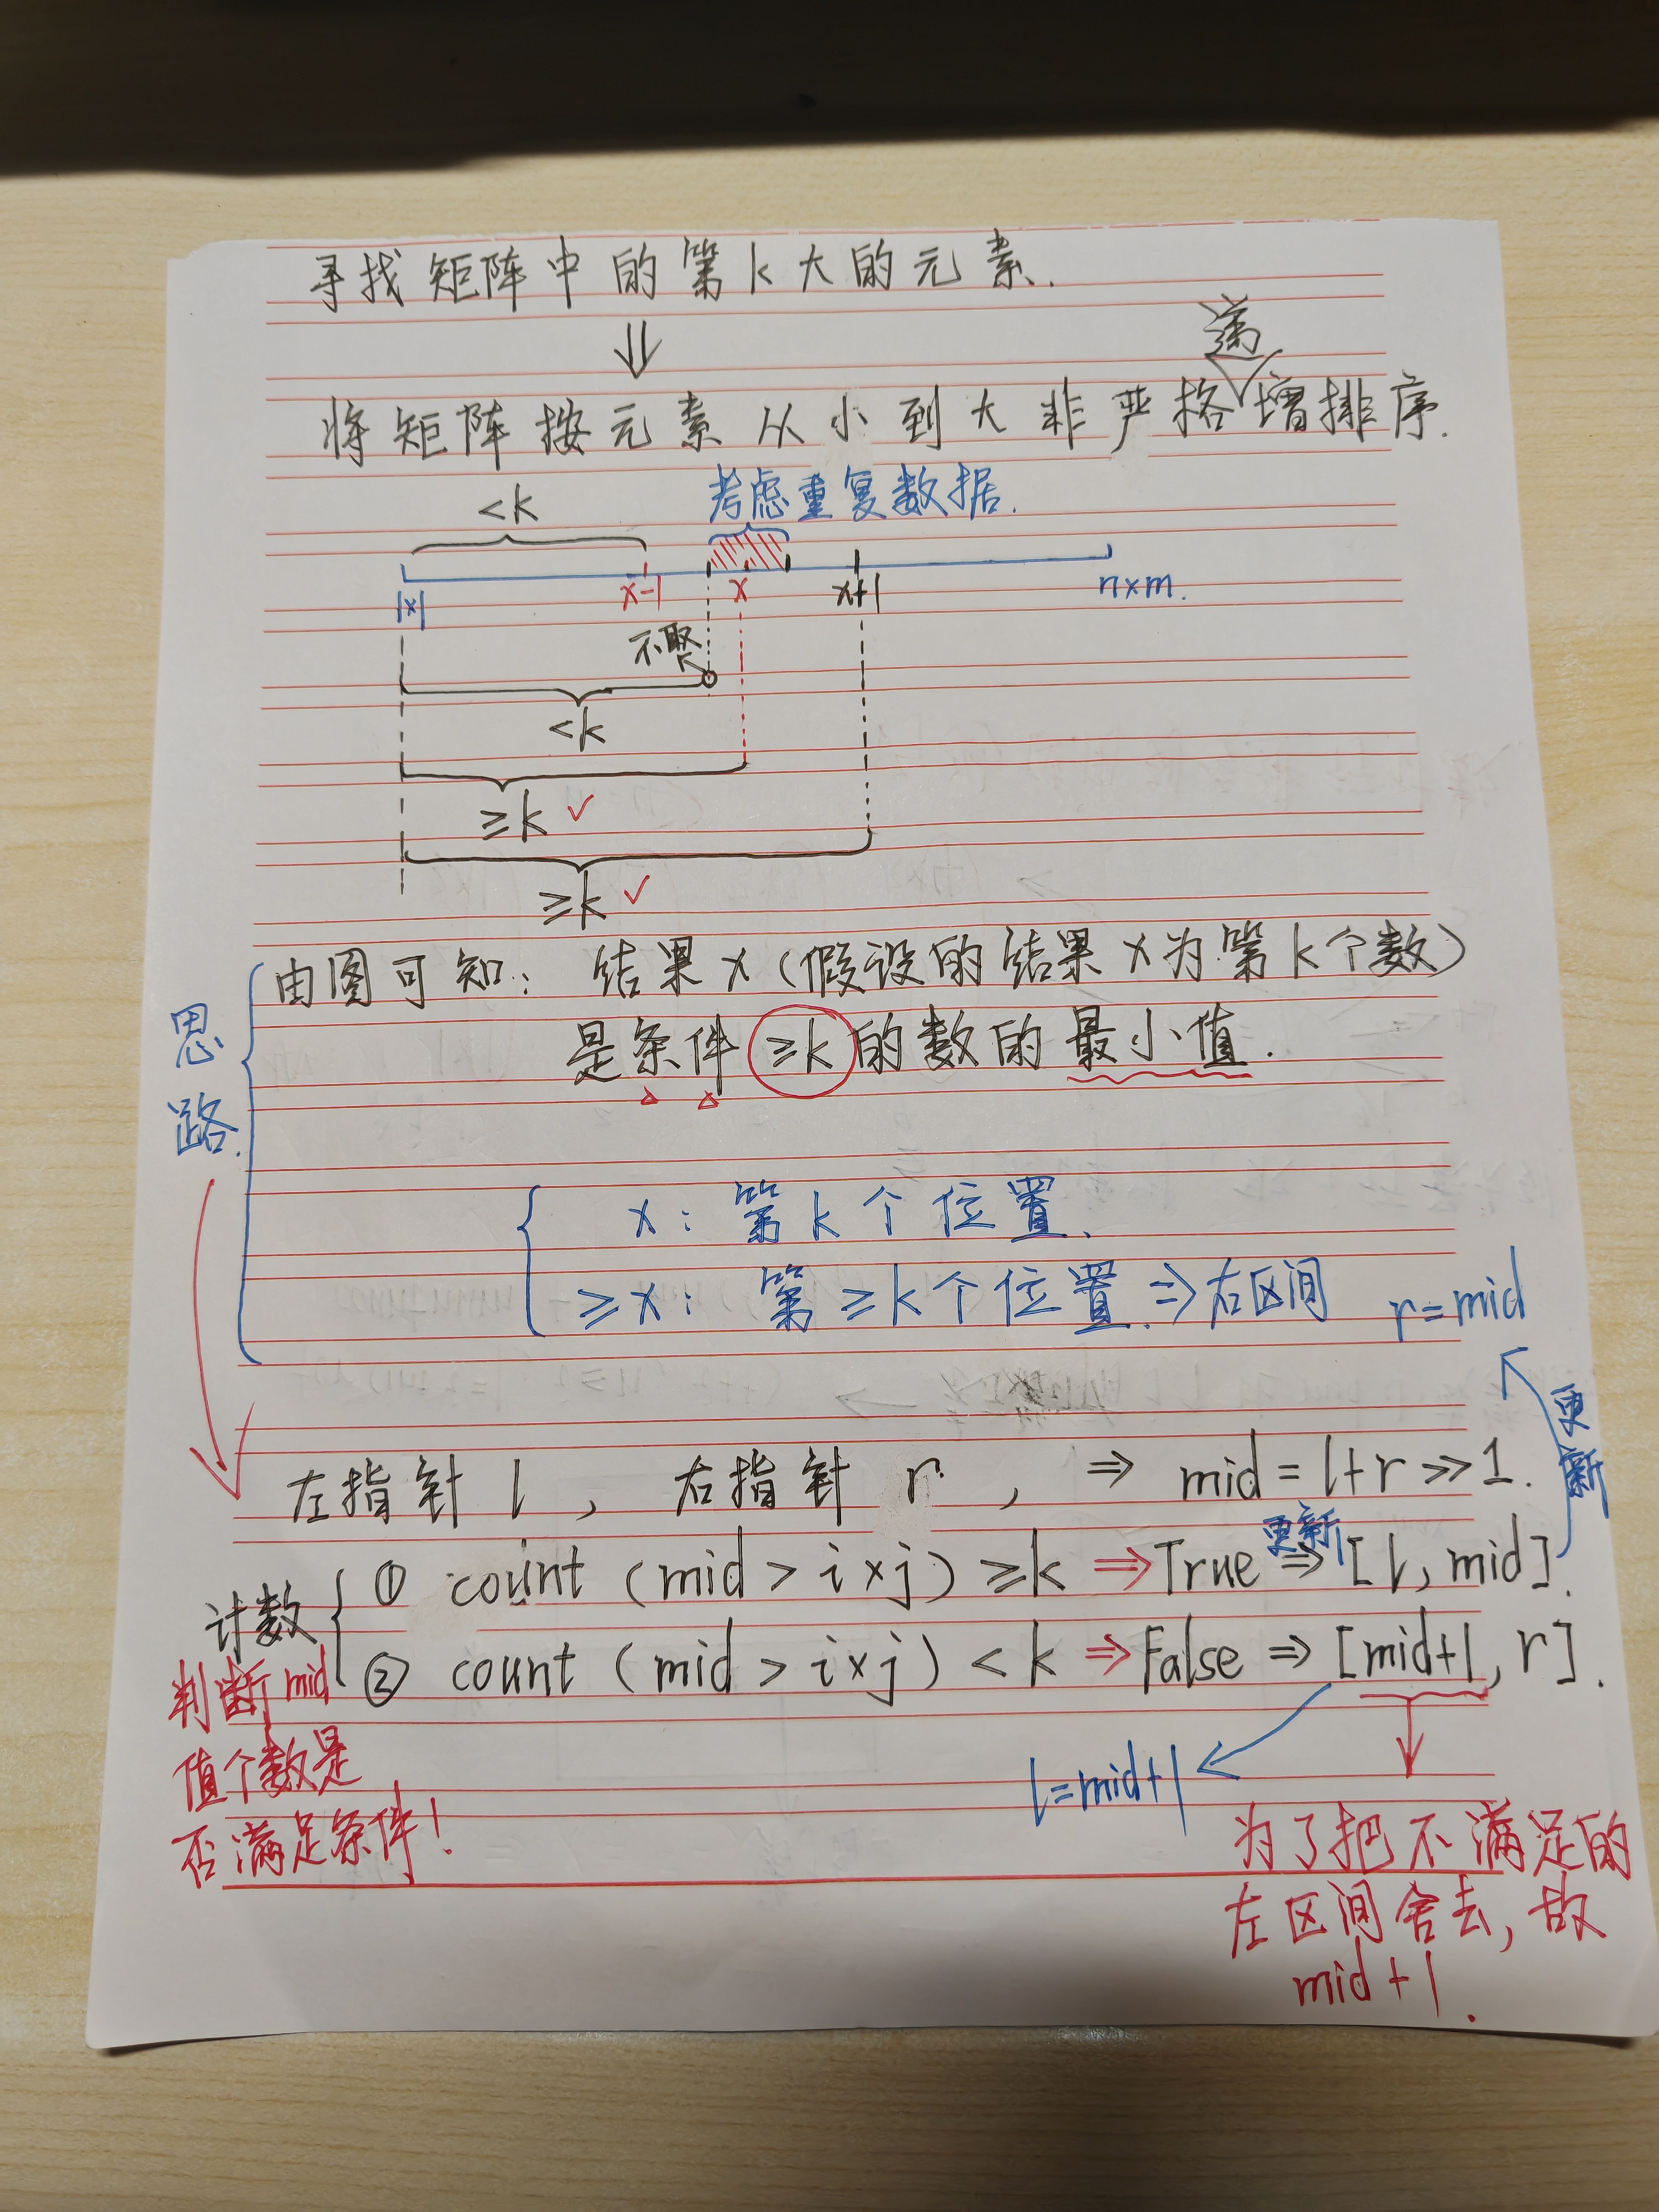 寻找矩阵中的第k大的元素.
⇓
将矩阵按元素从小到大非严格递增排序.
<k 考虑重复数据.
1×1 x-1 x x+1 n×m.
不取
<k
≥k ✓
≥k ✓
思路.
由图可知: 结果x(假设的结果x为第k个数)
是条件≥k的数的最小值.
x: 第k个位置.
≥x: 第≥k个位置.⇒右区间 r=mid
更新
左指针l, 右指针r, ⇒ mid=l+r>>1.
计数
① count(mid>i×j)≥k ⇒True 更新⇒[l,mid].
② count(mid>i×j)<k ⇒False ⇒[mid+1,r].
判断mid
值个数是
否满足条件!
l=mid+1
为了把不满足的
左区间舍去,故
mid+1.